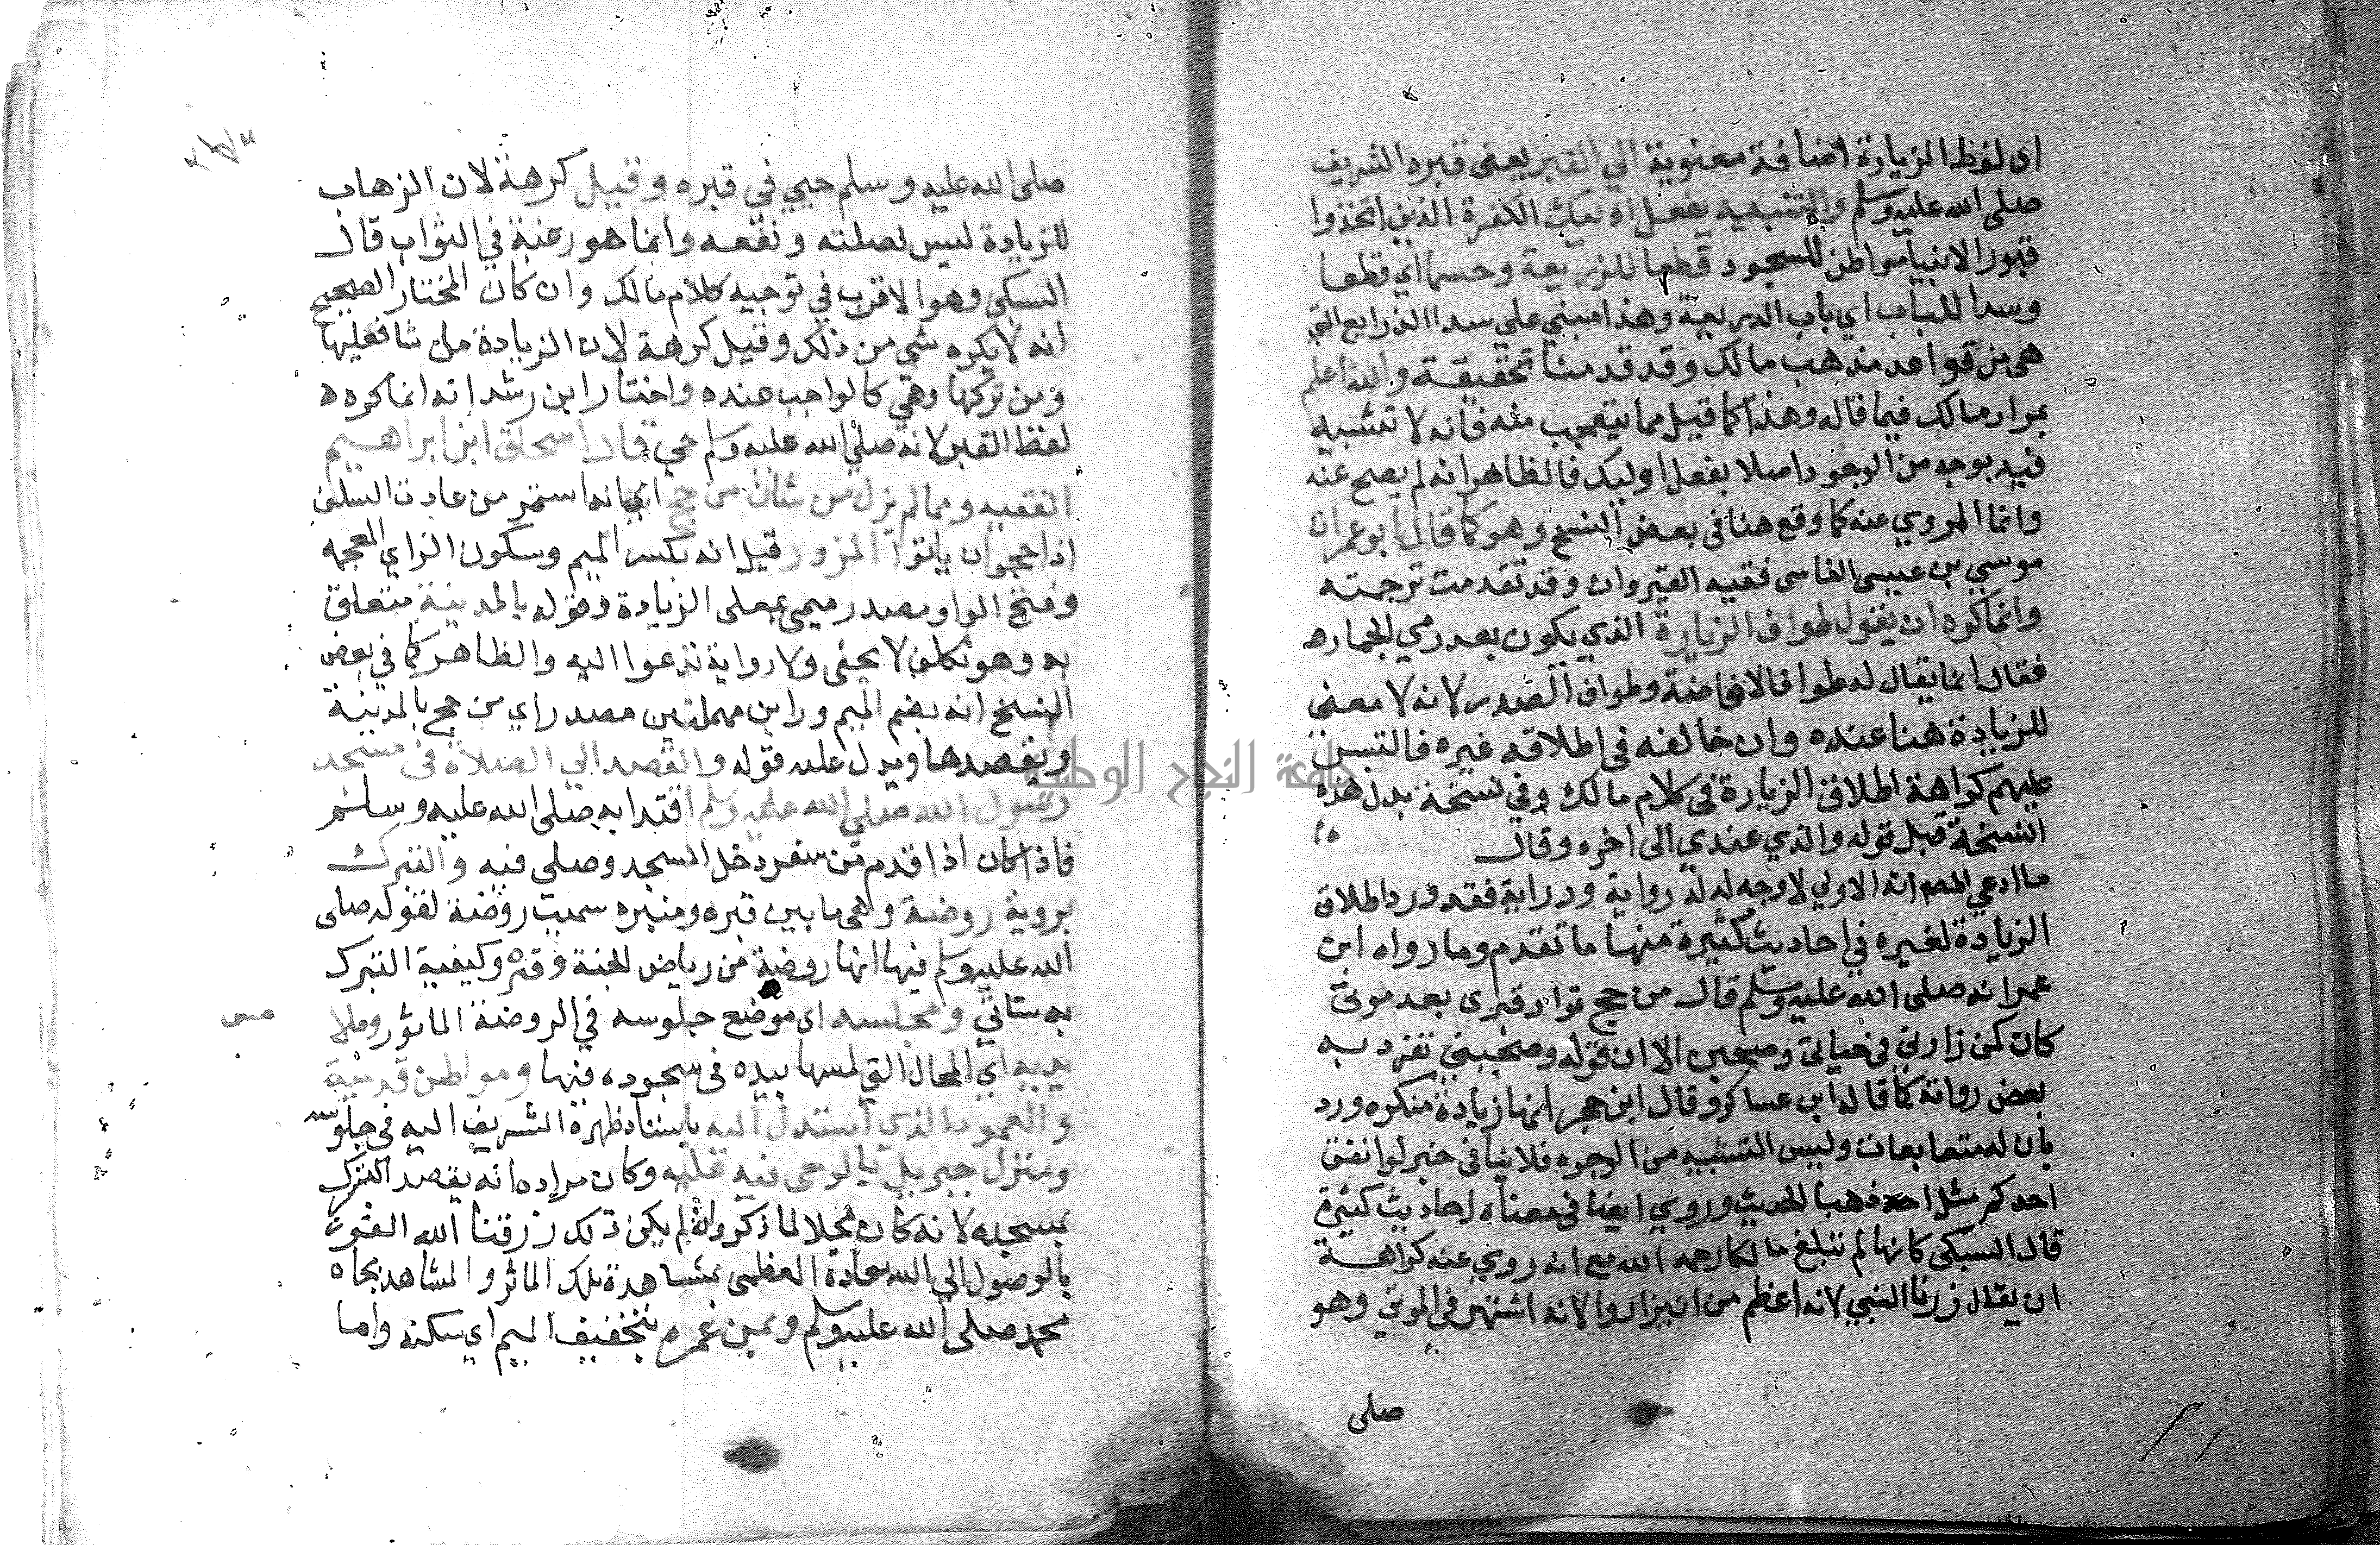 اى لفظ الزيارة اضافة معنوية الي القبر يعنى قبره الشريف
صلى الله عليه وسلم والتشبيه بفعل اوليك الكفرة الذين اتخذوا
قبور الانبيا مواطن للسجود قطعا للذريعة وحسما اي قطعا
وسدا للباب اي باب الذريعة وهذا مبني علي سد الذرايع التي
هى من قواعد مذهب مالك وقد قدمنا تحقيقة والله اعلم
بمراد مالك فيما قاله وهذا كما قيل مما يتعجب منه فانه لا تشبيه
فيه بوجه من الوجوه اصلا بفعل اوليك فالظاهر انه لم يصح عنه
وانما المروي عنه كما وقع هنا فى بعض النسخ وهو كما قال ابو عمران
موسي بن عيسى الفاسى فقيه القيروان وقد تقدمت ترجمته
وانما كره ان يقول طواف الزيارة الذي يكون بعد رمي الجماره
فقال انما يقال له طواف الافاضة وطواف الصدر لانه لا معنى
للزيادة هنا عنده وان خالفه فى اطلاقه غيره فالتبس
عليهم كراهة اطلاق الزيارة فى كلام مالك وفي نسخة بدل هذه
النسخة قبل قوله والذي عندي الى اخره وقال
ما ادعي المصم انه الاولي لا وجه له لة رواية ودراية فقد ورد اطلاق
الزيادة لغيره في احاديث كثيرة منها ما تقدم وما رواه ابن
عمر انه صلى الله عليه وسلم قال من حج فزار قبرى بعد موتى
كان كمن زارني فى حياتى وصحبنى الا ان قوله وصحبني تفرد به
بعض رواته كما قاله ابن عساكر وقال ابن حجر انها زيادة منكره ورد
بان له متعابعات وليس التشبيه من الوجوه فلا ينافى خبر لو انفق
احدكم مثل احد ذهبا الحديث وروي ايضا فى معناه احاديث كثيرة
قال السبكى كانها لم تبلغ مالكا رحمه الله مع انه روي عنه كراهة
ان يقال زرنا النبي لانه اعظم من ان يزار والانه اشتهر فى الموتي وهو
صلى
صلى الله عليه وسلم حيي في قبره وقيل كرهة لان الذهاب
للزيادة ليس لصلته ونفعه وانما هو رغبة في الثواب قال
السبكى وهو الاقرب في توجيه كلام مالك وان كان المختار الصحيح
انه لا يكره شي من ذلك وقيل كرهة لان الزيادة من شا فعليها
ومن تركها وهي كالواجب عنده واختار ابن رشد انه انما كره ه
لفظ القبر لانه صلي الله عليه وسلم حي قال اسحاق ابن ابراهيم
الفقيه ومما لم يزل من شان من حج اي انه استمر من عادت السلف
اذا حجوا ان ياتوا المزور قيل انه بكسر الميم وسكون الزاي المعجمه
وفتح الواو مصدر ميمي بمعلى الزيادة وقوله بالمدينة متعلق
به وهو تكلف لا يخفى ولا رواية تدعوا اليه والظاهر كما في بعض
النسخ انه بضم الميم وراين مهملتين مصدر اي من حج بالمدينة
ويقصدها ويدل عليه قوله والقصد الي الصلاة فى مسجد
رسول الله صلي الله عليه وسلم اقتدا به صلى الله عليه وسلم
فاذا كان اذا قدم من سفر دخل المسجد وصلى فيه والتبرك
بروية روضة وهى ما بين قبره ومنبره سميت روضة لقوله صلى
الله عليه وسلم فيها انها روضة من رياض الجنة وقبره وكيفية التبرك
به ستاتي ومجلسه اى موضع جلوسه في الروضة الماثور وملا
مس
يديه اي المحال التي لمسها بيده فى سجوده فيها ومواطن قدميه
والعمود الذي استدل اليه باسناد ظهره الشريف اليه فى جلوسه
ومنزل جبريل بالوحى فيه عليه وكان مراده انه يقصد التبرك
بمسجده لانه كان محلا لما ذكر وان لم يكن ذلك رزقنا الله المثوت
بالوصول الي السعادة العظمى بمشاهدة تلك الماثر والمشاهد بجاه
محمد صلى الله عليه وسلم وبمن عمره بتخفيف الميم اي سكنه واما
جامعة النجاح الوطنية